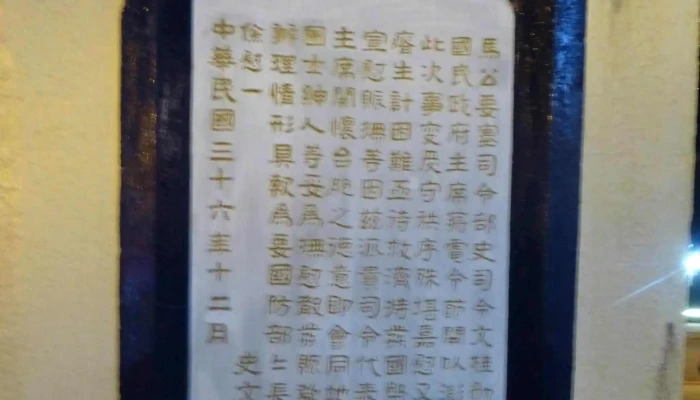 馬公要塞司令部史司令文桂勛
國民政府主席蔣電令節開以澎
此次事變民守秩序殊堪嘉慰又
瘠生計困難亟待救濟特發國幣
宣慰賑撫等因茲派貴司令代表
主席關懷台胞之德意即會同地
團士紳人等妥為撫慰散發賑
辦理情形具報為要國防部長
徐慰一 史文
中華民國三十六年十二月